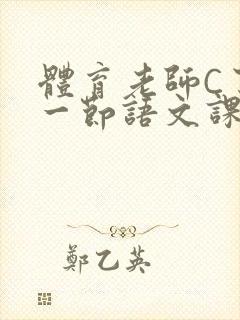 體育老師C
一節語文課
鄭乙英